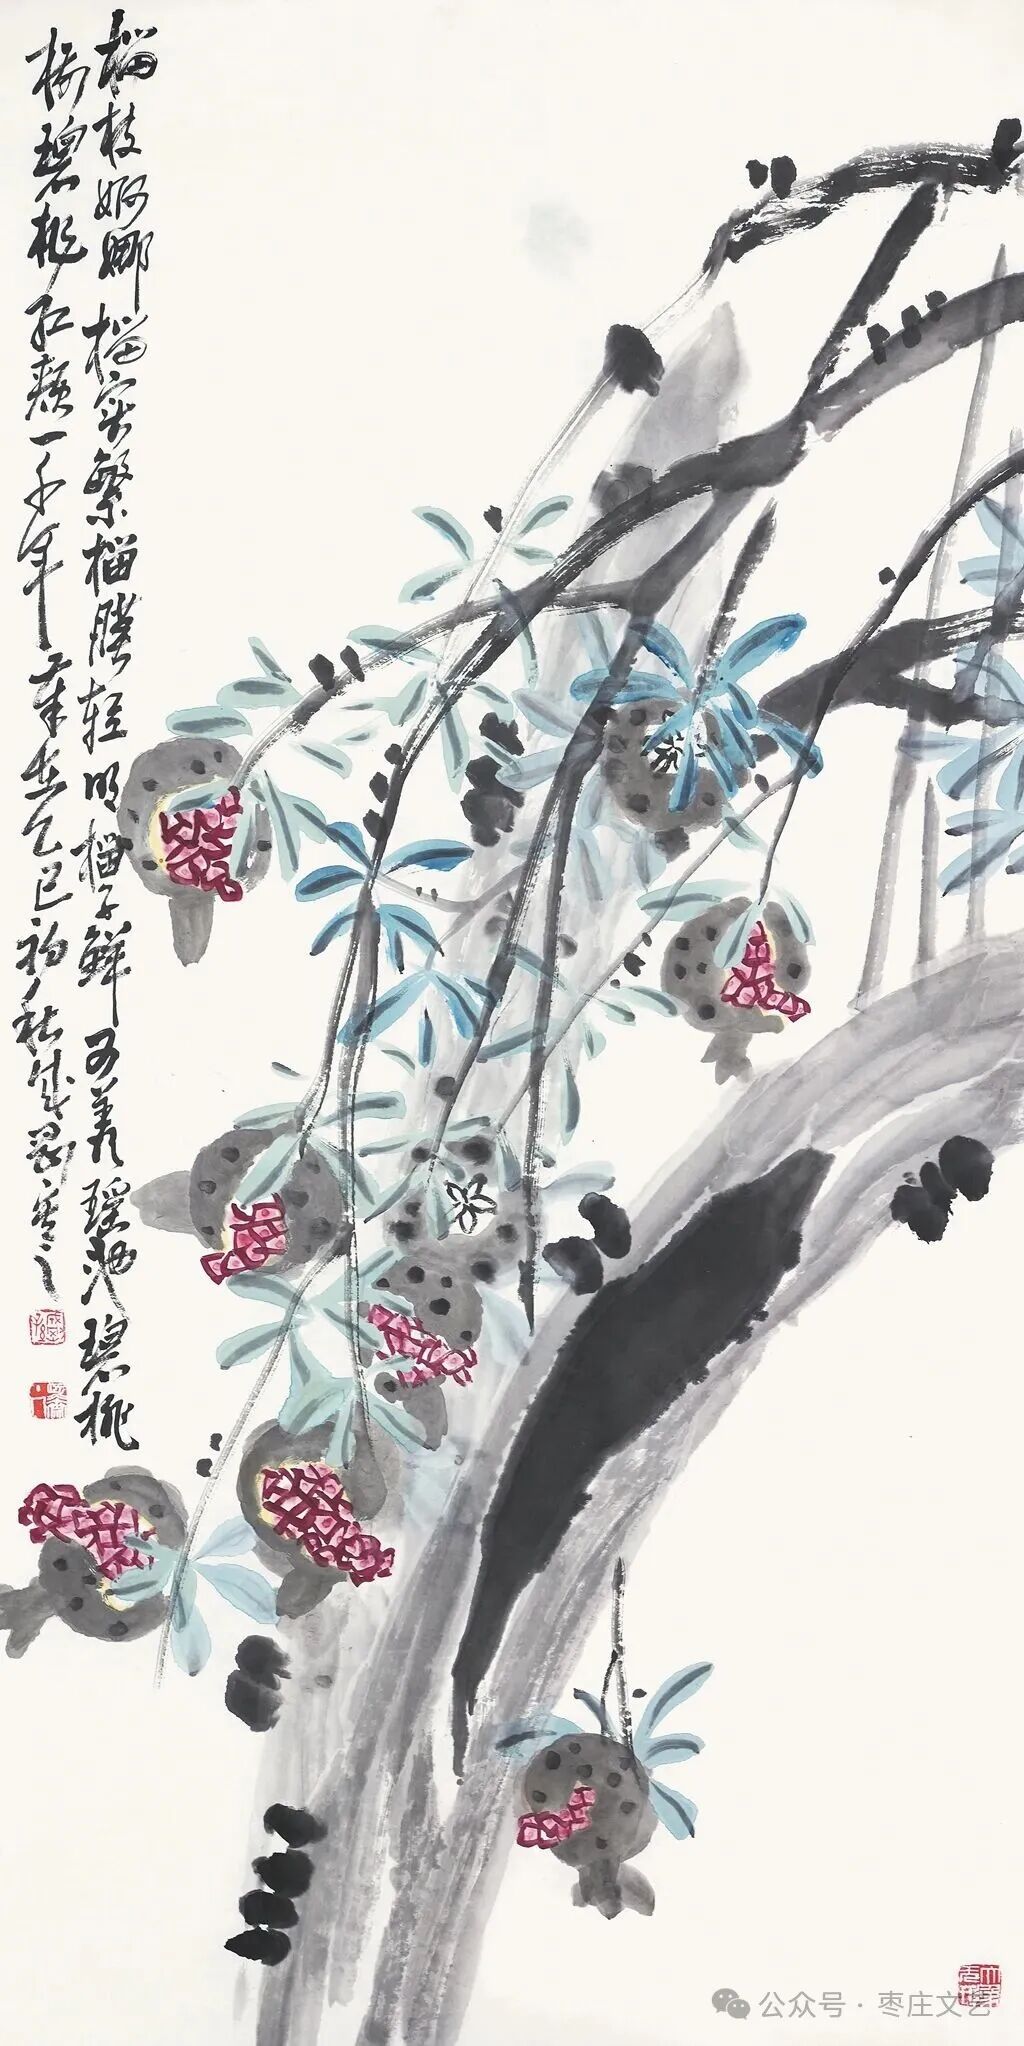 榴枝婀娜榴实繁榴膜轻明榴子鲜可羡瑶池碧桃
树碧桃红颊一千年岁在乙巳初秋成
公众号·枣庄文艺